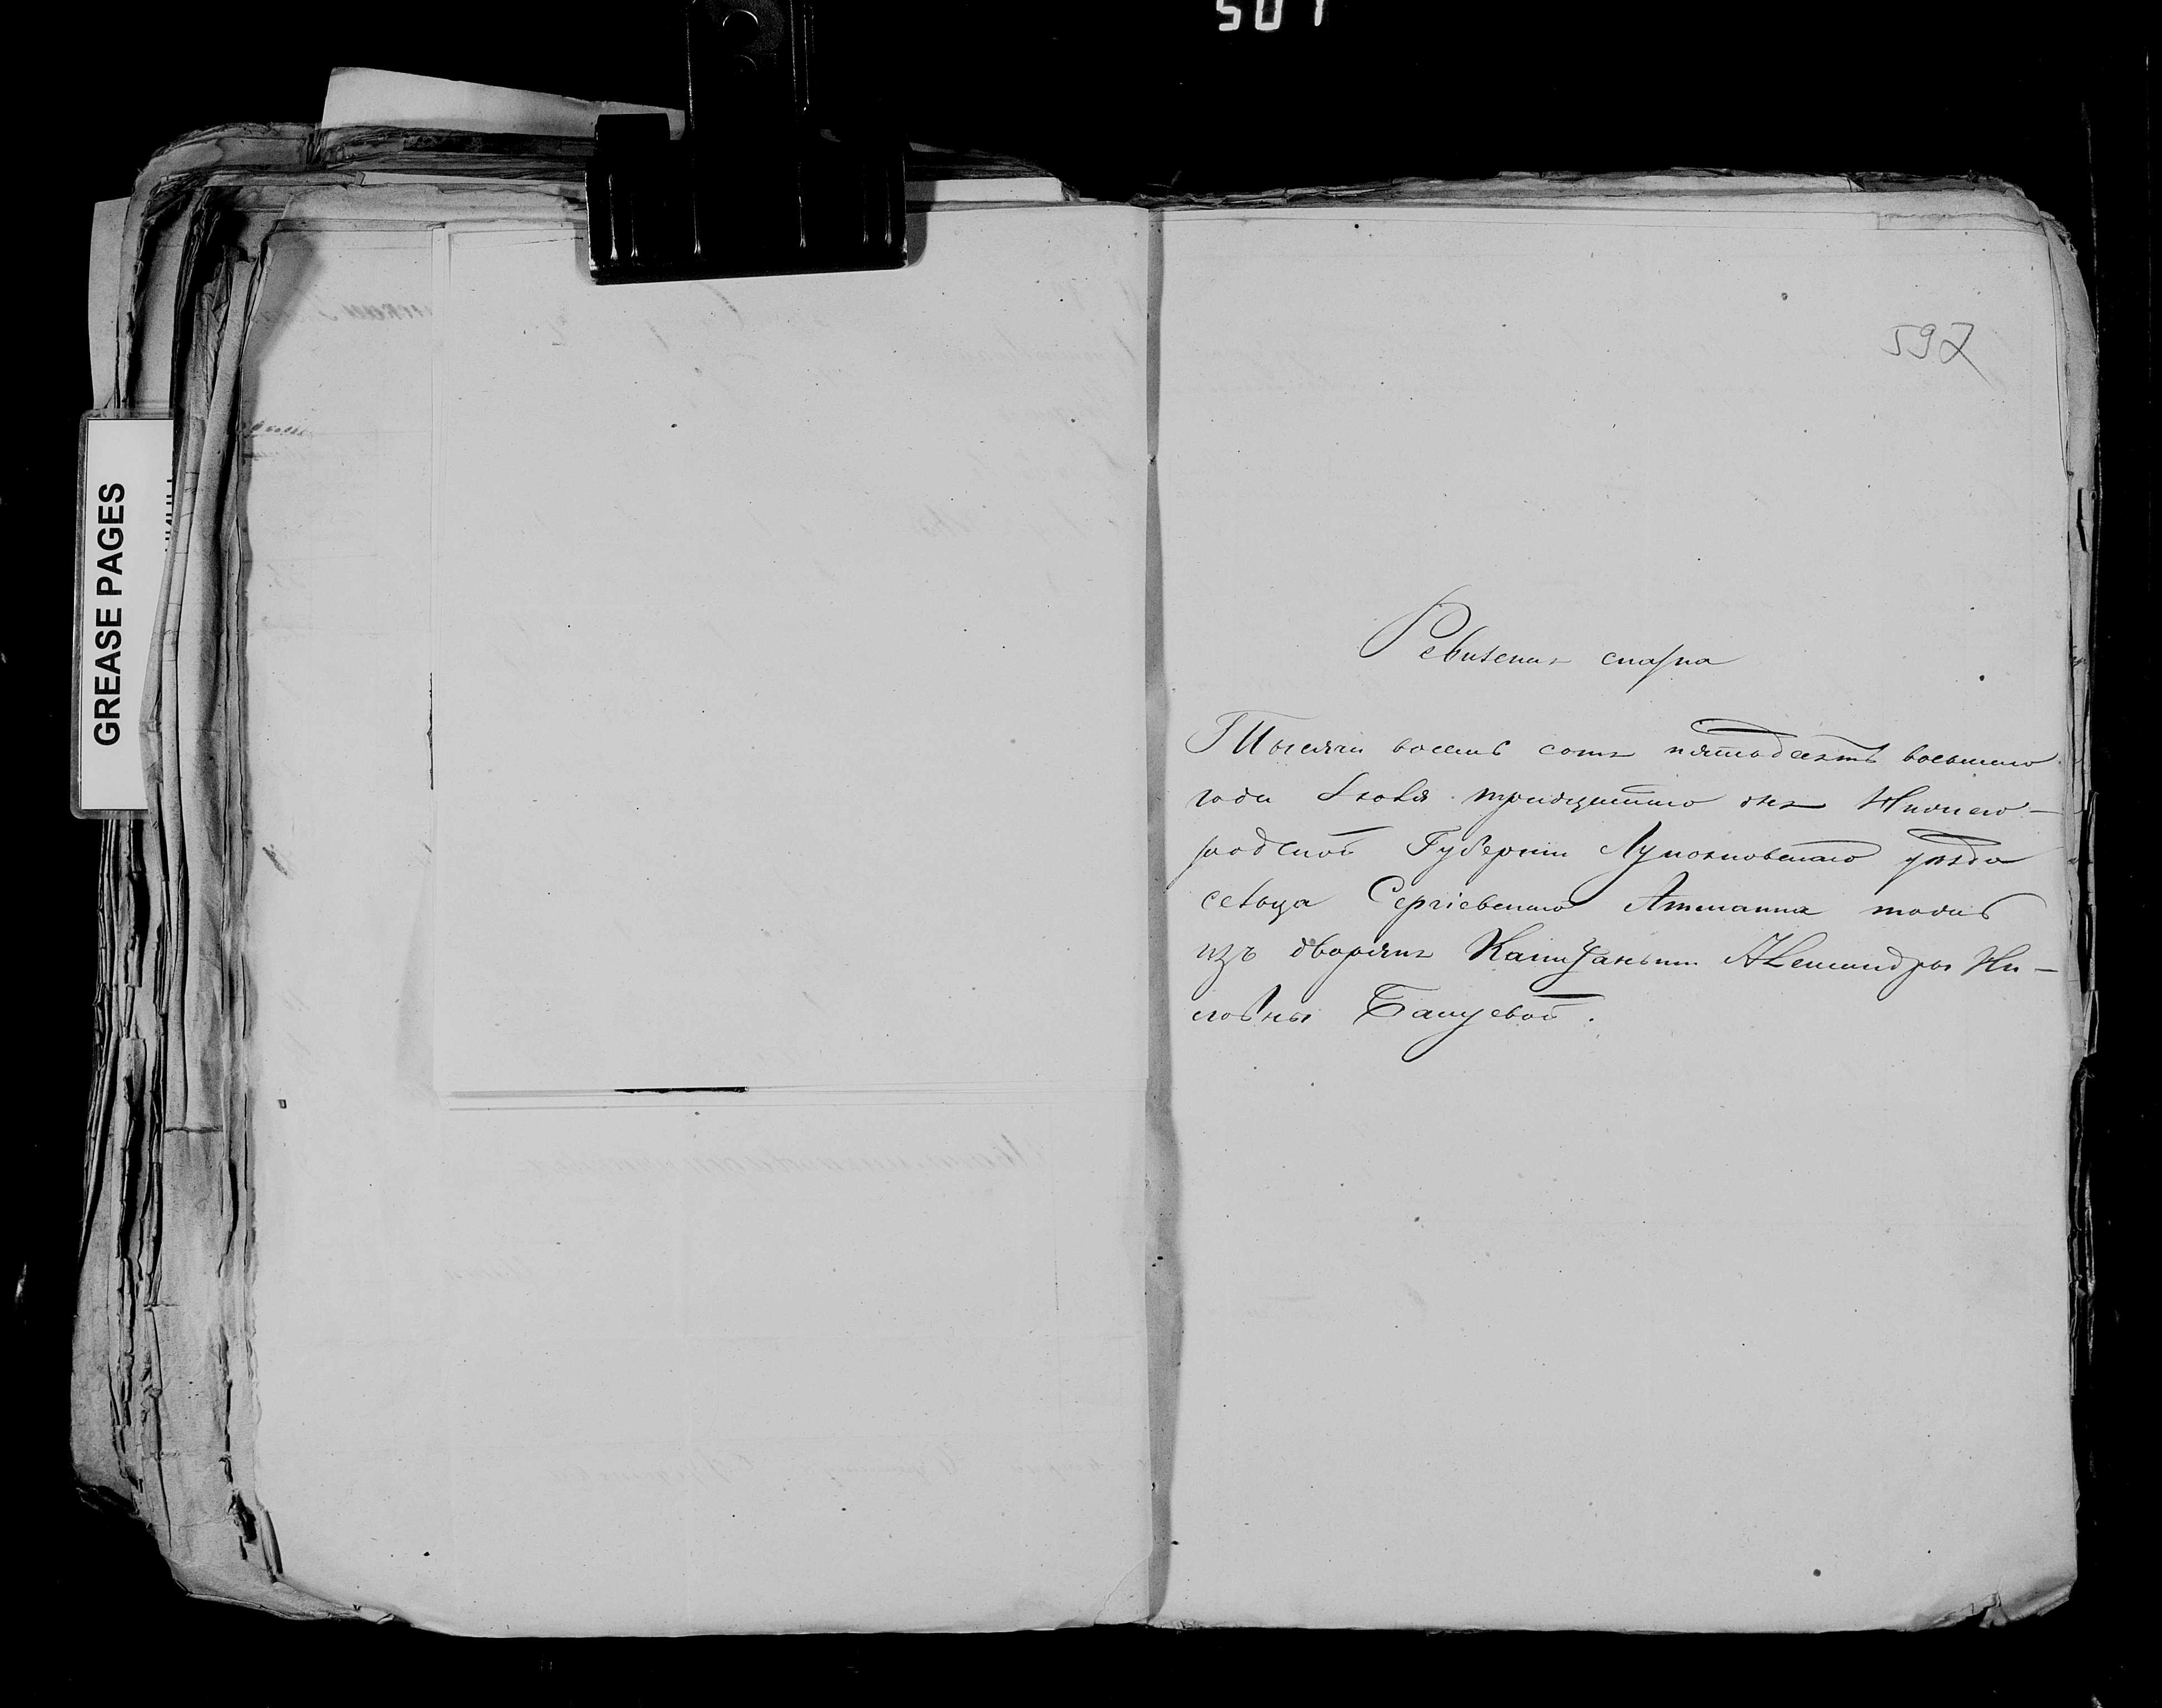 507
GREASE PAGES
597
Ревизская сказка
Тысяча восемь сотъ пятьдесятъ восьмаго
года Іюля тридцатаго дня Нижего-
родской Губерніи Лукояновскаго уѣзда
сельца Сергіевскаго тожъ
изъ дворянъ Капитаньши Александры Ни-
ловны